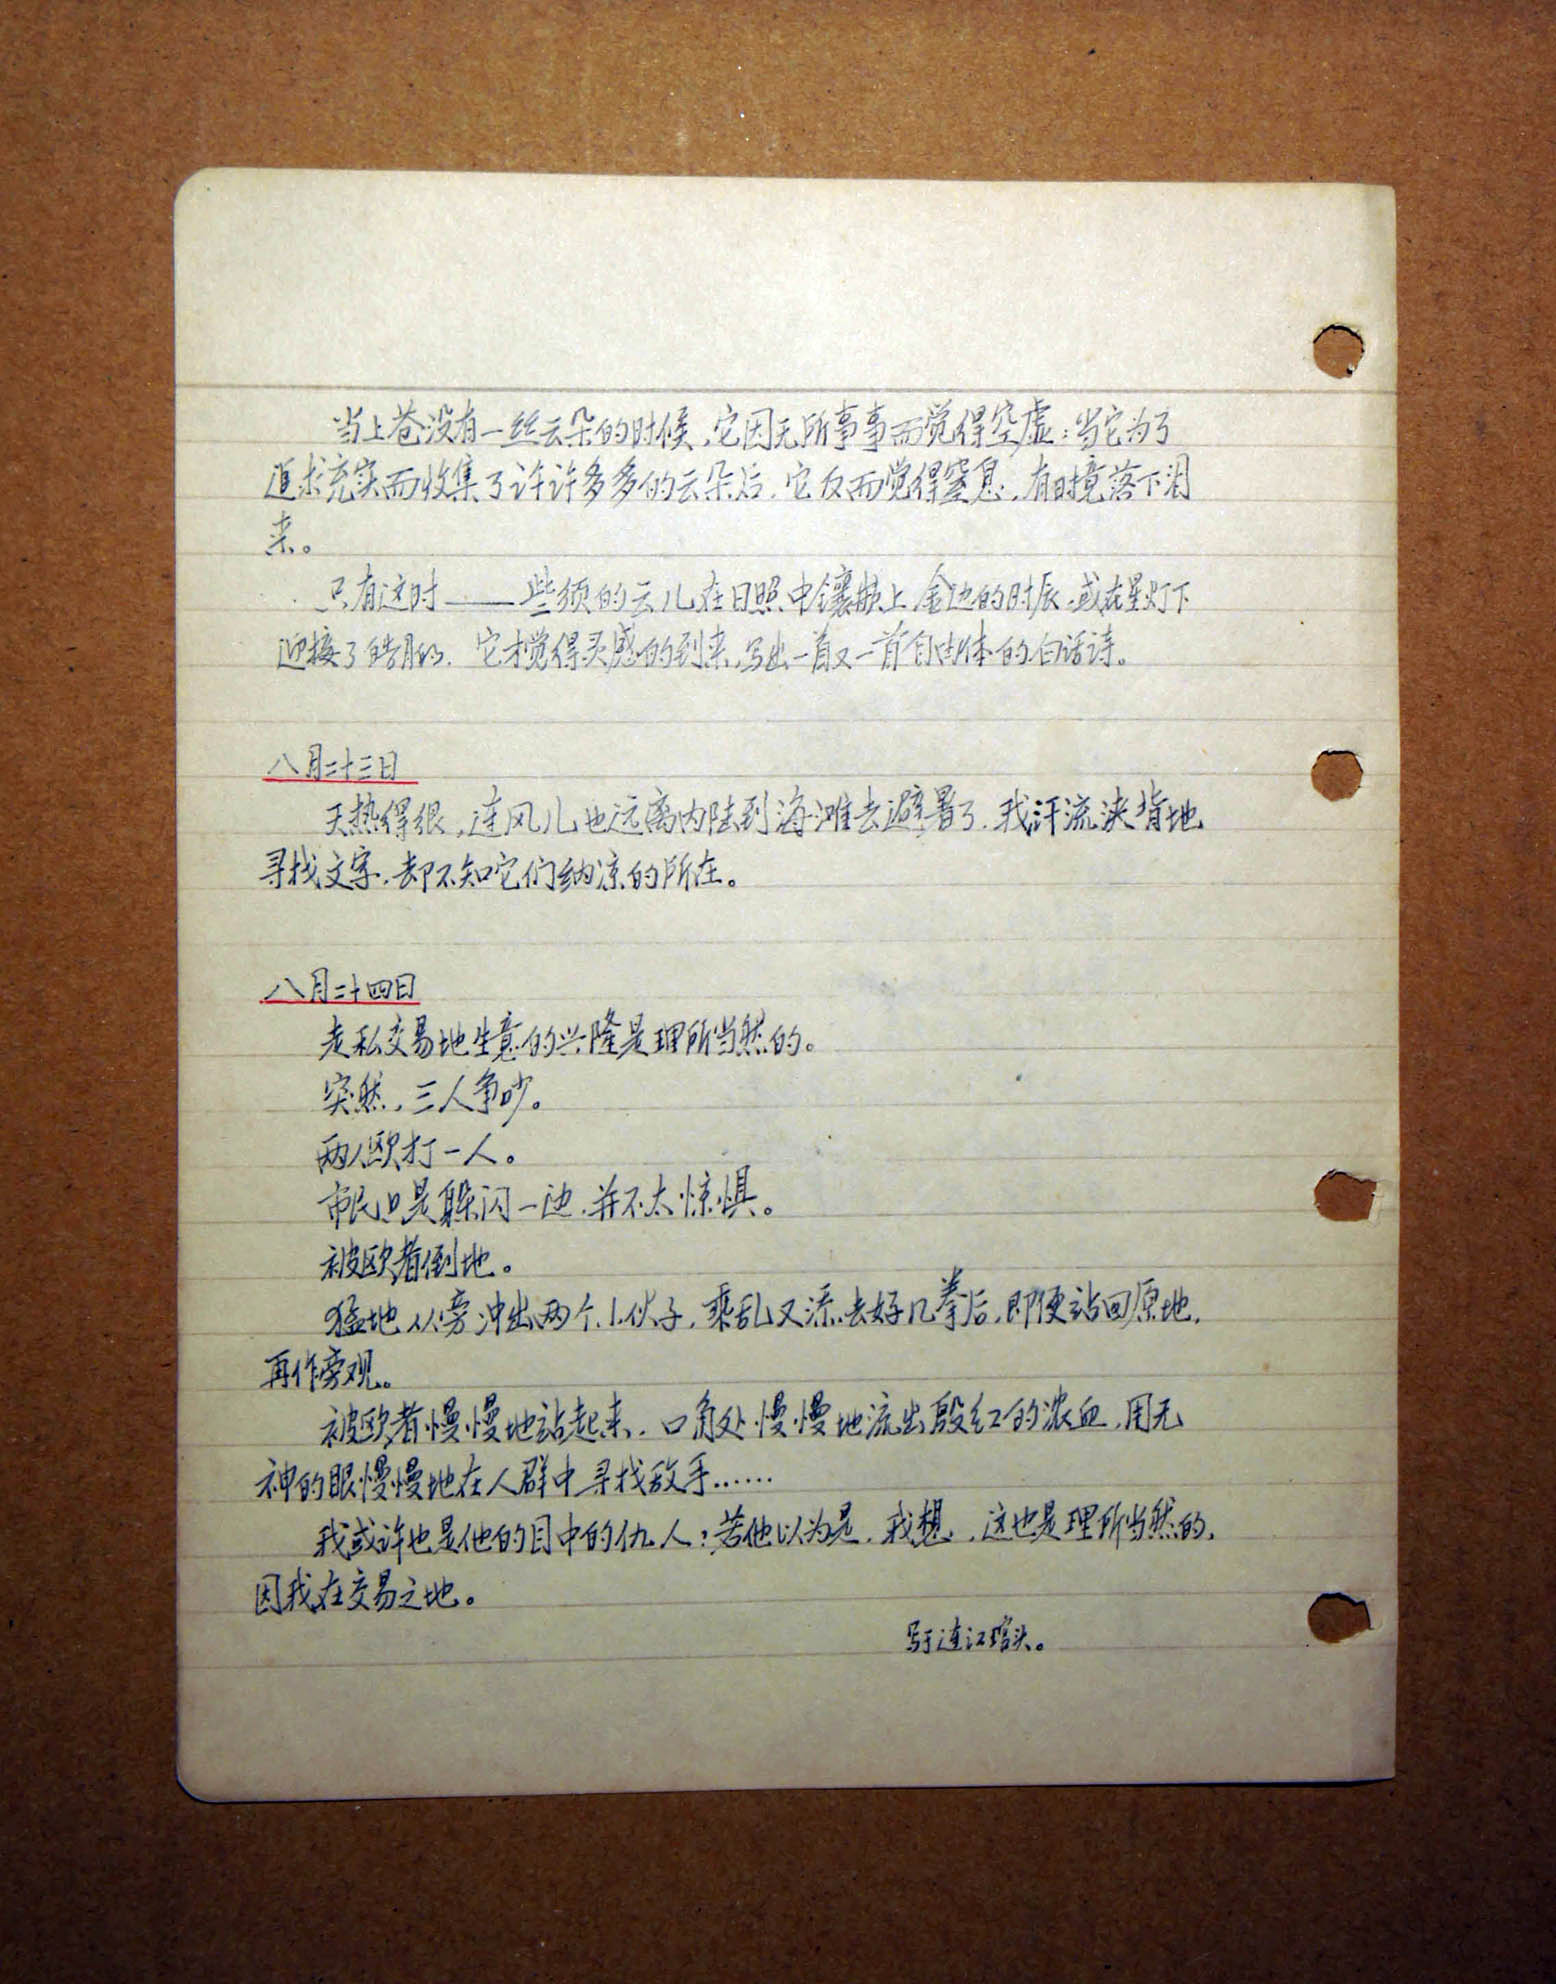 当上苍没有一丝云朵的时候,它因无所事事而觉得空虚;当它为了
追求充实而收集了许许多多的云朵后,它反而觉得窒息,有时竟落下泪
来。
只有这时——些须的云儿在日照中镶上金边的时辰,或在星灯下
迎接了皓月的,它才觉得灵感的到来,写出一首又一首自由体的白话诗。
八月二十三日
天热得很,连风儿也远离内陆到海滩去避暑了,我汗流浃背地
寻找文字,却不知它们纳凉的所在。
八月二十四日
走私交易地生意的兴隆是理所当然的。
突然,三人争吵。
两人欧打一人。
市民只是躲闪一边,并不太惊惧。
被欧者倒地。
猛地从旁冲出两个小伙子,乘乱又添去好几拳后,即便站回原地,
再作旁观。
被欧者慢慢地站起来,口角处慢慢地流出殷红的浓血,用无
神的眼慢慢地在人群中寻找敌手……
我或许也是他的目中的仇人;若他以为是,我想,这也是理所当然的,
因我在交易之地。
写于连江琯头。